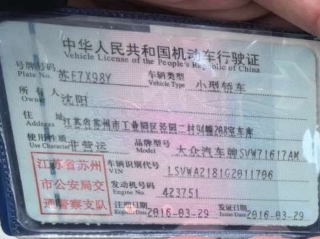 中华人民共和国机动车行驶证
Vehicle License of the People's Republic of China
号牌号码 苏E7X98Y 车辆类型 小型轿车
Plate No. Vehicle Type
所有人 沈阳
Owner
住址 江苏省苏州市工业园区
Address
使用性质 非营运 品牌型号 大众汽车牌SVW71617AM
Use Character Model
江苏省苏州 车辆识别代号 LSVWA2181G2011706
VIN
市公安局交 发动机号码 423751
Engine No.
通警察支队 2016-03-29 2016-03-29
Register Date Issue Date